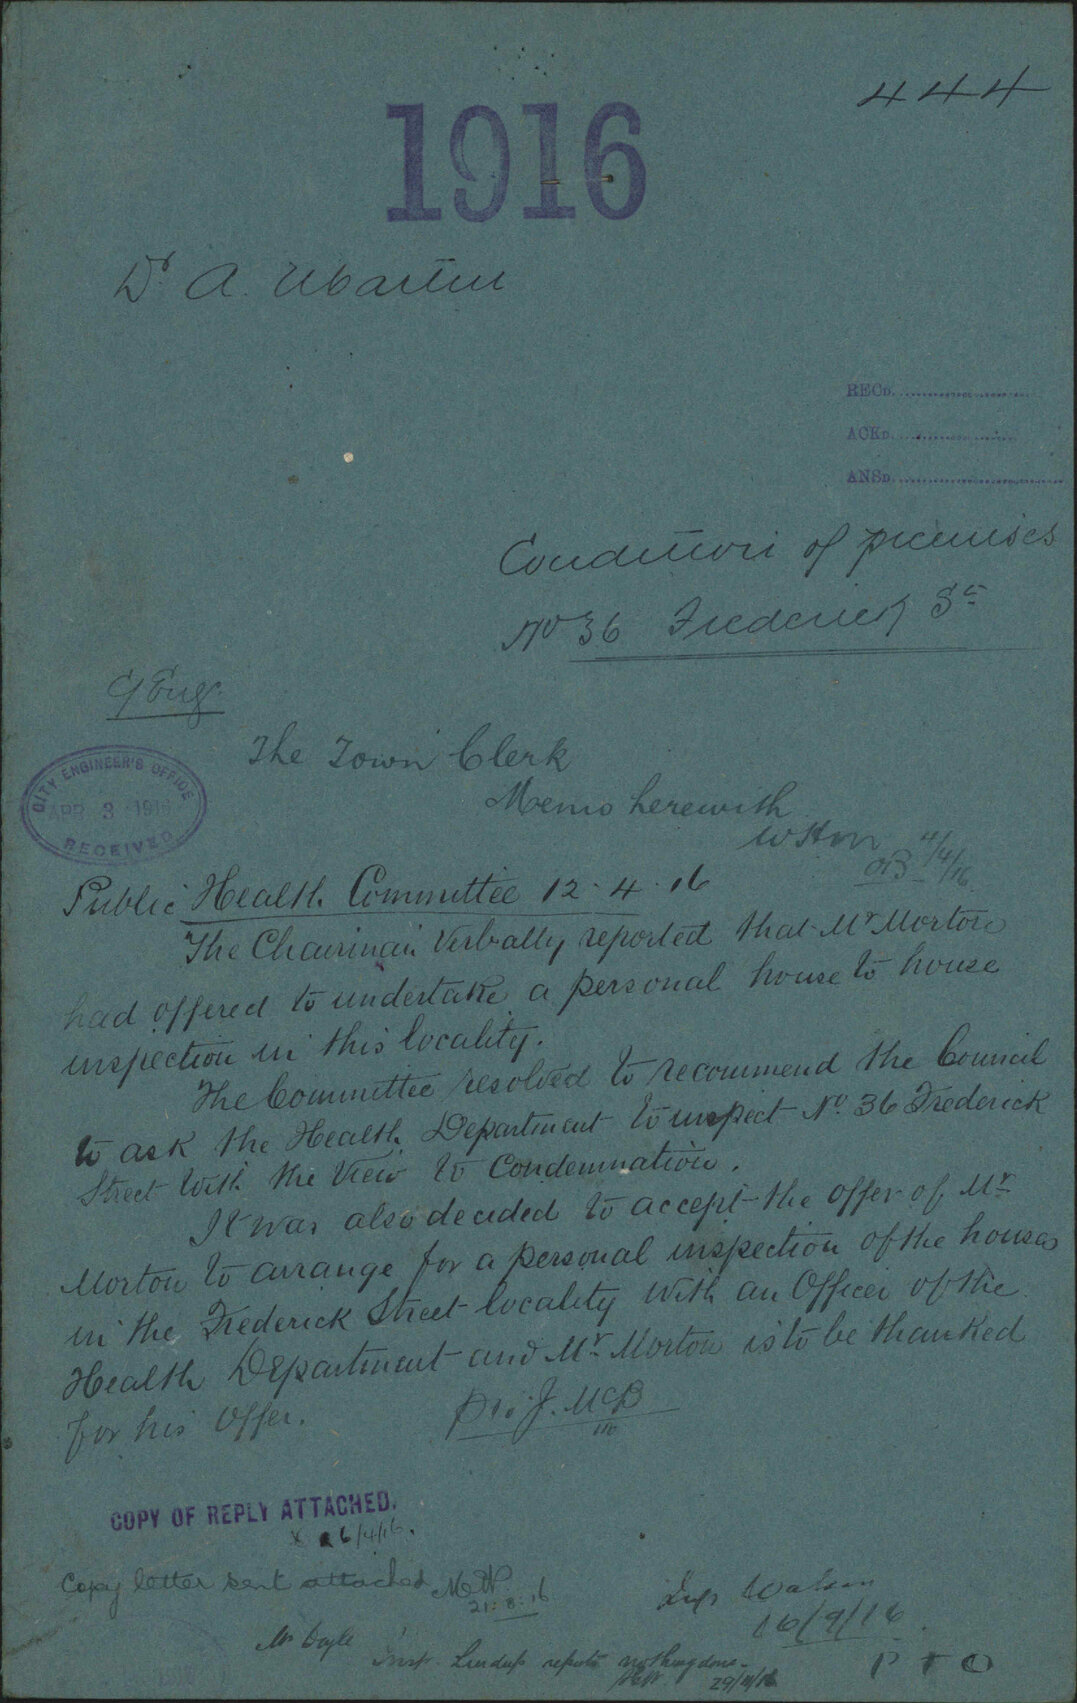 444
1916
Dr. A. Martin
RECD.
ACKD.
ANSD.
Condition of premises
No 36 Frederick St
C/Eng.
The Town Clerk
CITY ENGINEER'S OFFICE
APR 3 1916
RECEIVED
Memo herewith
4/4/16
Public Health Committee 12.4.16
The Chairman Verbally reported that Mr Morton
had offered to undertake a personal house to house
inspection in this locality.
The Committee resolved to recommend the Council
to ask the Health Department to inspect No. 36 Frederick
Street with the View to Condemnation.
It was also decided to accept the offer of Mr
Morton to arrange for a personal inspection of the houses
in the Frederick Street locality with an Officer of the
Health Department and Mr Morton is to be thanked
for his Offer.
Pro J. McB
COPY OF REPLY ATTACHED.
6/4/16.
Copy letter sent attached
21.8.16
Insp Watson
16/9/16
Mr Doyle
Insp. reports nothing done.
29/11/16
P T O